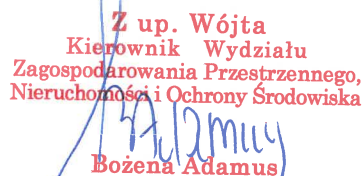 Z up. Wójta
Kierownik Wydziału
Zagospodarowania Przestrzennego,
Nieruchomości i Ochrony Środowiska
Bożena Adamus